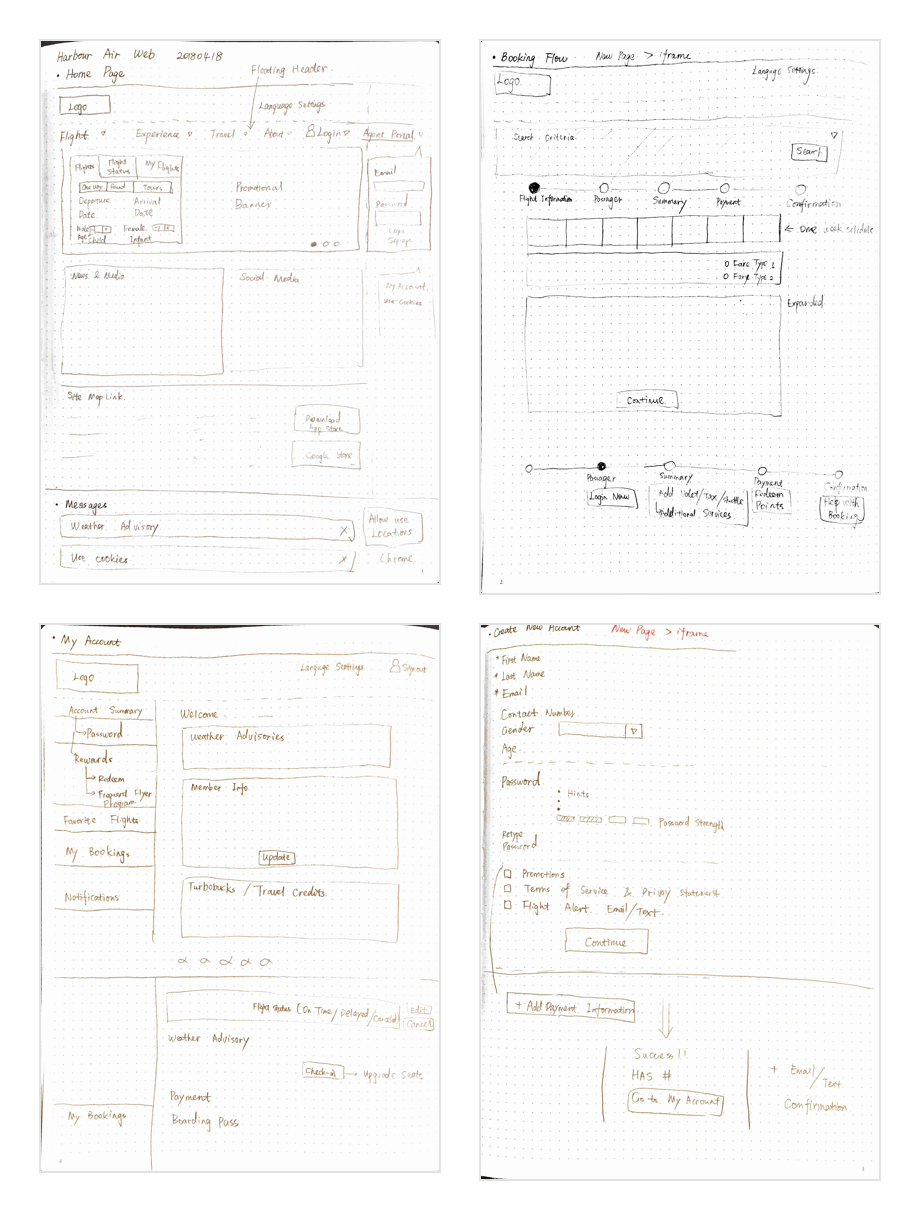 Harbour Air Web 20180418
• Home Page
Floating Header.
Logo
Language Settings
Flight Experience Travel About Login Agent Portal
Flights Flight Status My Flights
One Way Round Tours
Departure Arrival
Date Date
Male Female
Ages
+ Child Infant
Promotional
Banner
Email
Password
Login
Sign up
News & Media
Social Media
My Account.
Use Cookies
Site Map Link.
Download
App Store
Google Store
• Messages
Weather Advisory X
Allow use
Locations
Use cookies X
Chrome.
1
• Booking Flow New Page > iframe
Languge Settings.
Logo
Search Criteria
Search
Flight Information Passager Summary Payment Confirmation
← One week schedule
O Fare Type 1
O Fare Type 2
Expanded
Continue
Passager Summary Payment Confirmation
Login Now
Add Valet/Tax/Shuttle
Additional Services
Redeem
Points
Help with
Booking
2
• My Account
Logo
Languge Settings
Signout
Account Summary
→ Password
Rewards
→ Redeem
→ Frequend Flyer
Program
Favorite Flights
My Bookings
Notifications
Welcome
Weather Advisories
Member Info
Update
Turbobucks / Travel Credits
Flight Status (On Time/Delayed/Cancel)
Edit
Cancel
Weather Advisory
Check-in → Upgrade Seats
Payment
Boarding Pass
My Bookings
4
• Create New Account New Page > iframe
* First Name
* Last Name
* Email
Contact Number
Gender
Age
Password
• Hints
Password Strength
Retype
Password
Promotions
Terms of Service & Privay Statement
Flight Alert. Email/Text.
Continue
+ Add Payment Information
Success!!
HAS #
Go to My Account
+ Email/Text
Confirmation
3